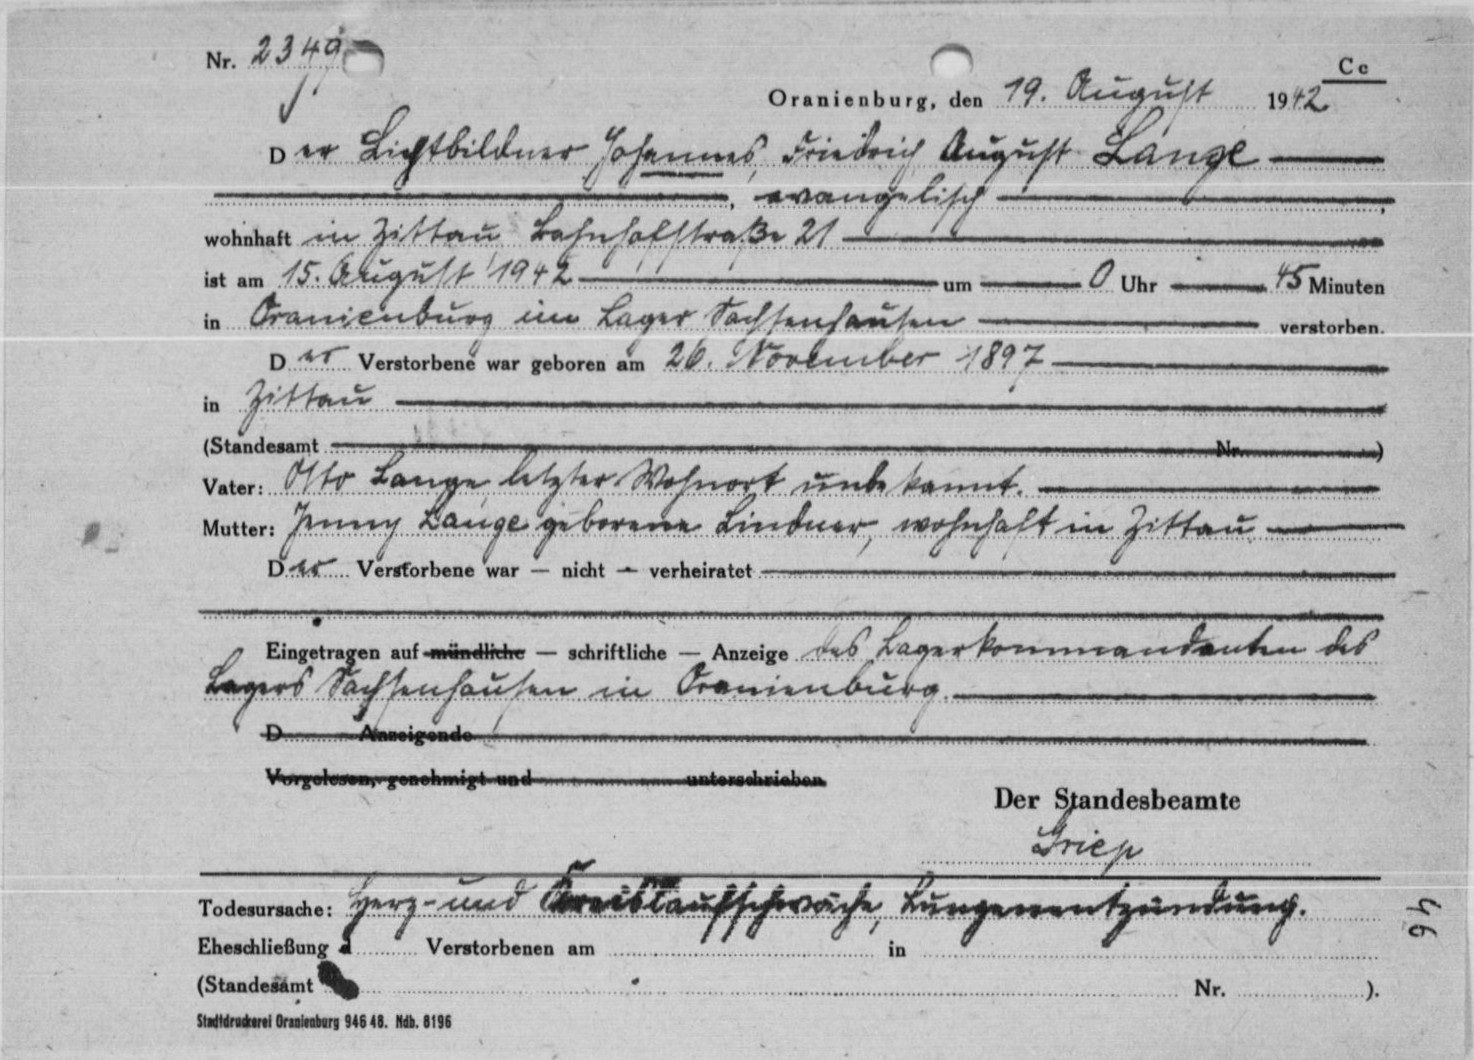 Nr. 2349
C c
Oranienburg, den 19. August 1942
Der Lichtbildner Johannes, Friedrich August Lange
, evangelisch ,
wohnhaft in Zittau, Bahnhofstraße 21
ist am 15. August 1942 um 0 Uhr 45 Minuten
in Oranienburg im Lager Sachsenhausen verstorben.
Der Verstorbene war geboren am 26. November 1897
in Zittau
(Standesamt Nr. )
Vater: Otto Lange, letzter Wohnort unbekannt.
Mutter: Jenny Lange geborene Lindner, wohnhaft in Zittau
Der Verstorbene war — nicht — verheiratet
Eingetragen auf mündliche — schriftliche — Anzeige des Lagerkommandanten des
Lagers Sachsenhausen in Oranienburg.
D Anzeigende
Vorgelesen, genehmigt und unterschrieben
Der Standesbeamte
Griep
Todesursache: Herz- und Kreislaufschwäche, Lungenentzündung.
46
Eheschließung d Verstorbenen am in
(Standesamt Nr. ).
Stadtdruckerei Oranienburg 946 48. Ndb. 8196